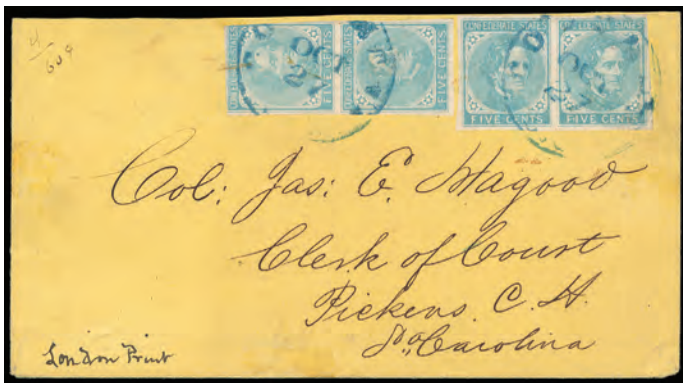 CONFEDERATE STATES
FIVE CENTS
CONFEDERATE STATES
FIVE CENTS
CONFEDERATE STATES
FIVE CENTS
CONFEDERATE STATES
FIVE CENTS
OCT
2
OCT
2
Col: Jas: E. Hagood
Clerk of Court
Pickens C. H.
So. Carolina
London Print